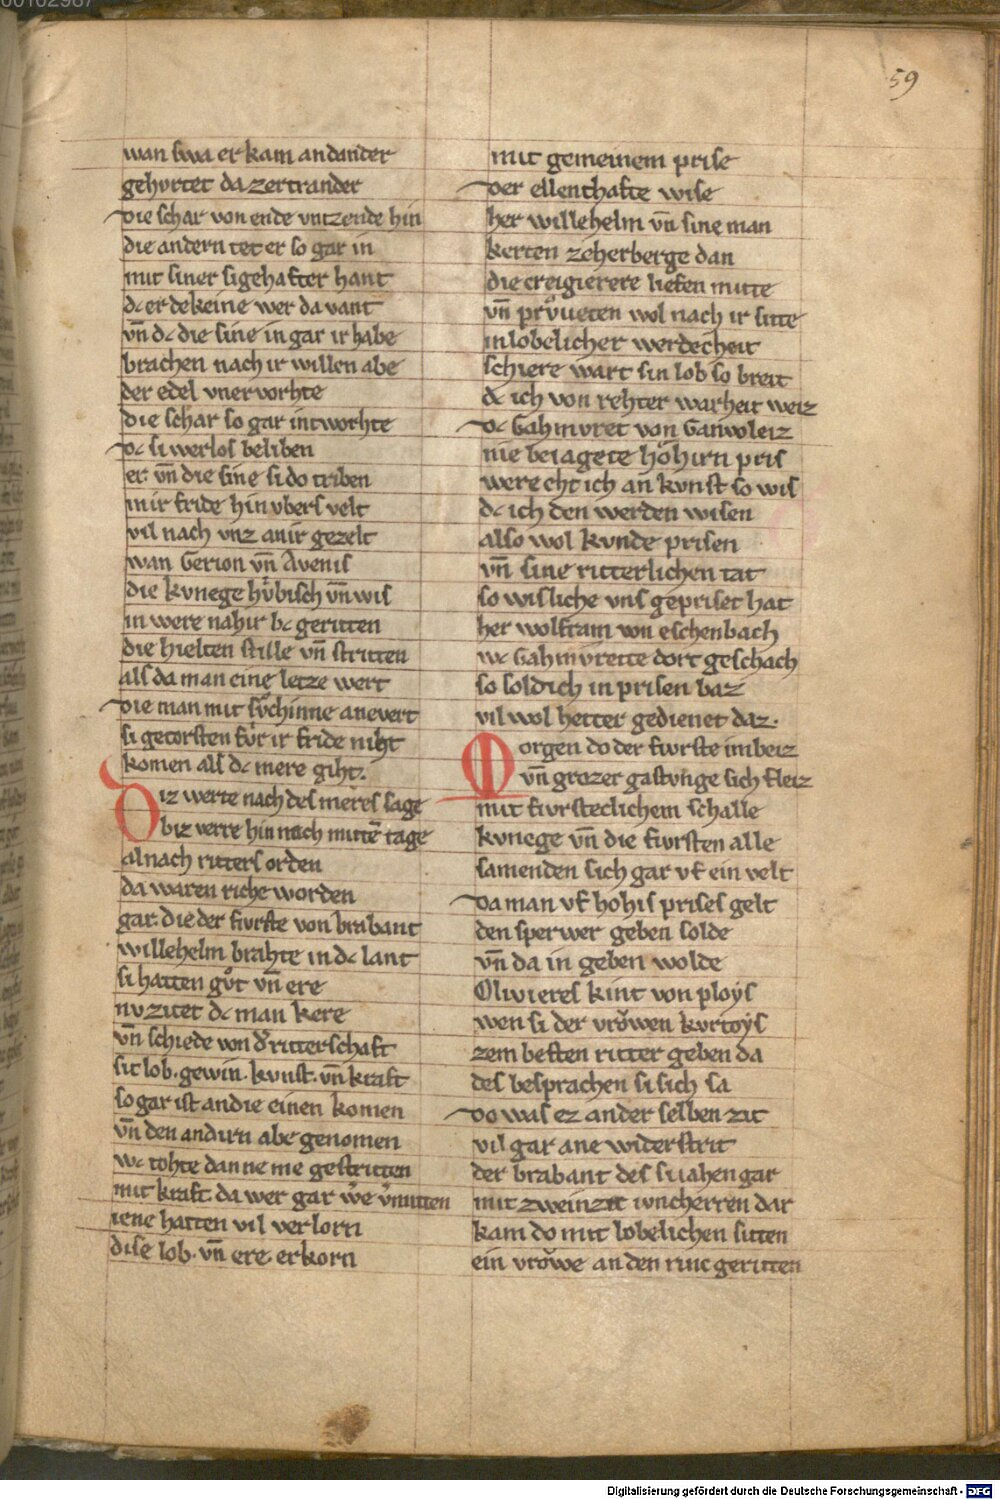 00102987
59
wan swa er kam andander
gehvrtet da zertrander
die schar von ende vntzende hin
die andern tet er so gar in
mit siner sigehafter hant
dc er dekeine wer da vant
vn̄ dc die sine in gar ir habe
brachen nach ir willen abe
der edel vnervorhte
die schar so gar intworhte
dc si werlos beliben
er vn̄ die sine si do triben
mir fride hin vbers velt
vil nach vnz an ir gezelt
wan Gerion vn̄ Avenis
die kvnege hv̍bisch vn̄ wis
in were nahir bc geritten
die hielten stille vn̄ stritten
als da man eine letze wert
die man mit sv̊chinne anevert
si getorsten fv̍r ir fride niht
komen als dc mere giht.
Diz werte nach des meres sage
biz verre hin nach mittē tage
al nach ritters orden
da waren riche worden
gar. die der fvrste von brabant
willehelm brahte in dc lant
si hatten gv̊t vn̄ ere
nv zitet dc man kere
vn̄ schiede von d̓ ritterschaft
sit lob. gewin. kvnst. vn̄ kraft
so gar ist an die einen komen
vn̄ den andirn abe genomen
wc tohte danne me gestritten
mit kraft da wer gar w̓e v̓mitten
iene hatten vil verlorn
dise lob. vn̄ ere. erkorn
mit gemeinem prise
der ellenthafte wise
her willehelm vn̄ sine man
kerten zeherberge dan
die creigierere liefen mitte
vn̄ prv̊ueten wol nach ir sitte
in lobelicher werdecheit
schiere wart sin lob so breit
dc ich von rehter warheit weiz
dc Gahmvret von Ganvoleiz
nie beiagete hohirn pris
were eht ich an kvnst so wis
dc ich den werden wisen
also wol kvnde prisen
vn̄ sine ritterlichen tat
so wisliche vns gepriset hat
her wolfram von eschenbach
wc Gahmvrette dort geschach
so sold ich in prisen baz
vil wol hetter gedienet daz.
Morgen do der fvrste imbeiz
vn̄ grozer gastvnge sich fleiz
mit fvrsteclichem schalle
kvnege vn̄ die fvrsten alle
samenden sich gar vf ein velt
da man vf hohis prises gelt
den sperwer geben solde
vn̄ da in geben wolde
Olivieres kint von ploys
wen si der vrowen kvrtoys
zem besten ritter geben da
des besprachen si sich sa
do was ez ander selben zit
vil gar ane widerstrit
der brabant des sv̓ahen gar
mit zweinzit ivncherren dar
kam do mit lobelichen sitten
ein vrowe an den rinc geritten
Digitalisierung gefördert durch die Deutsche Forschungsgemeinschaft - DFG